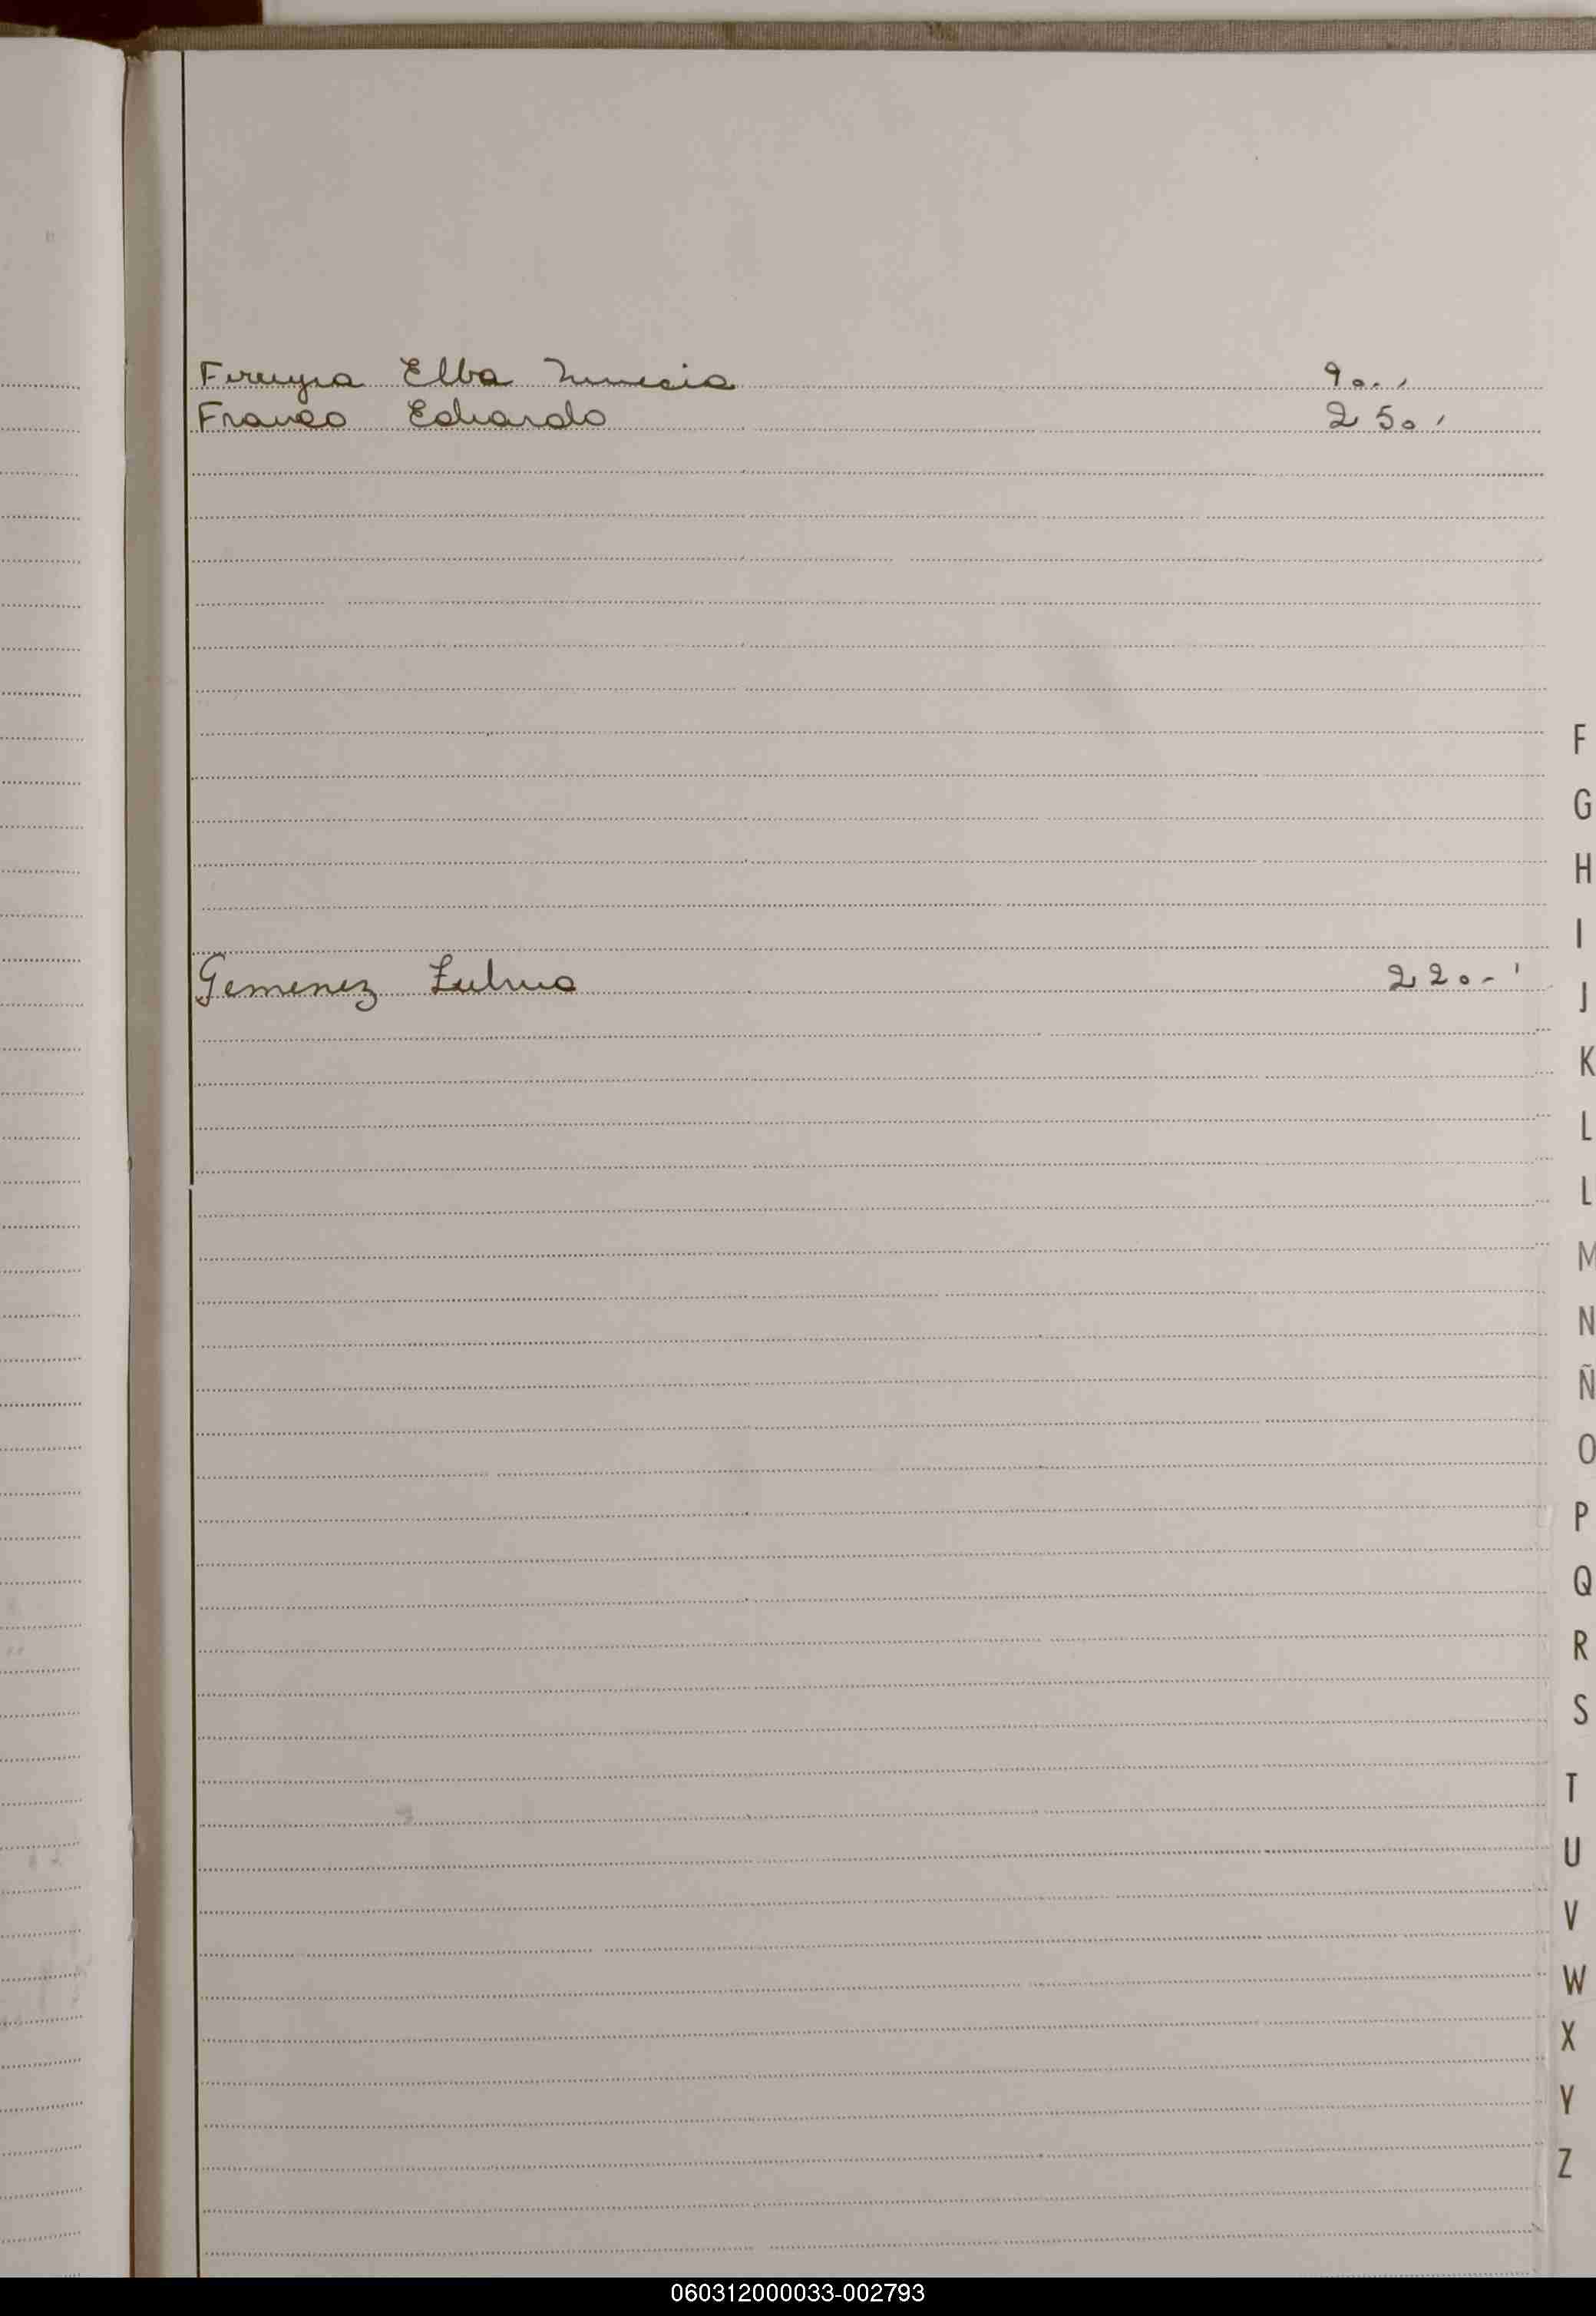 Ferreyra Elba 90.-
Franco Eduardo 250.-
Gemenez Zulma 220.-
F
G
H
I
J
K
L
L
M
N
Ñ
O
P
Q
R
S
T
U
V
W
X
Y
Z
060312000033-002793